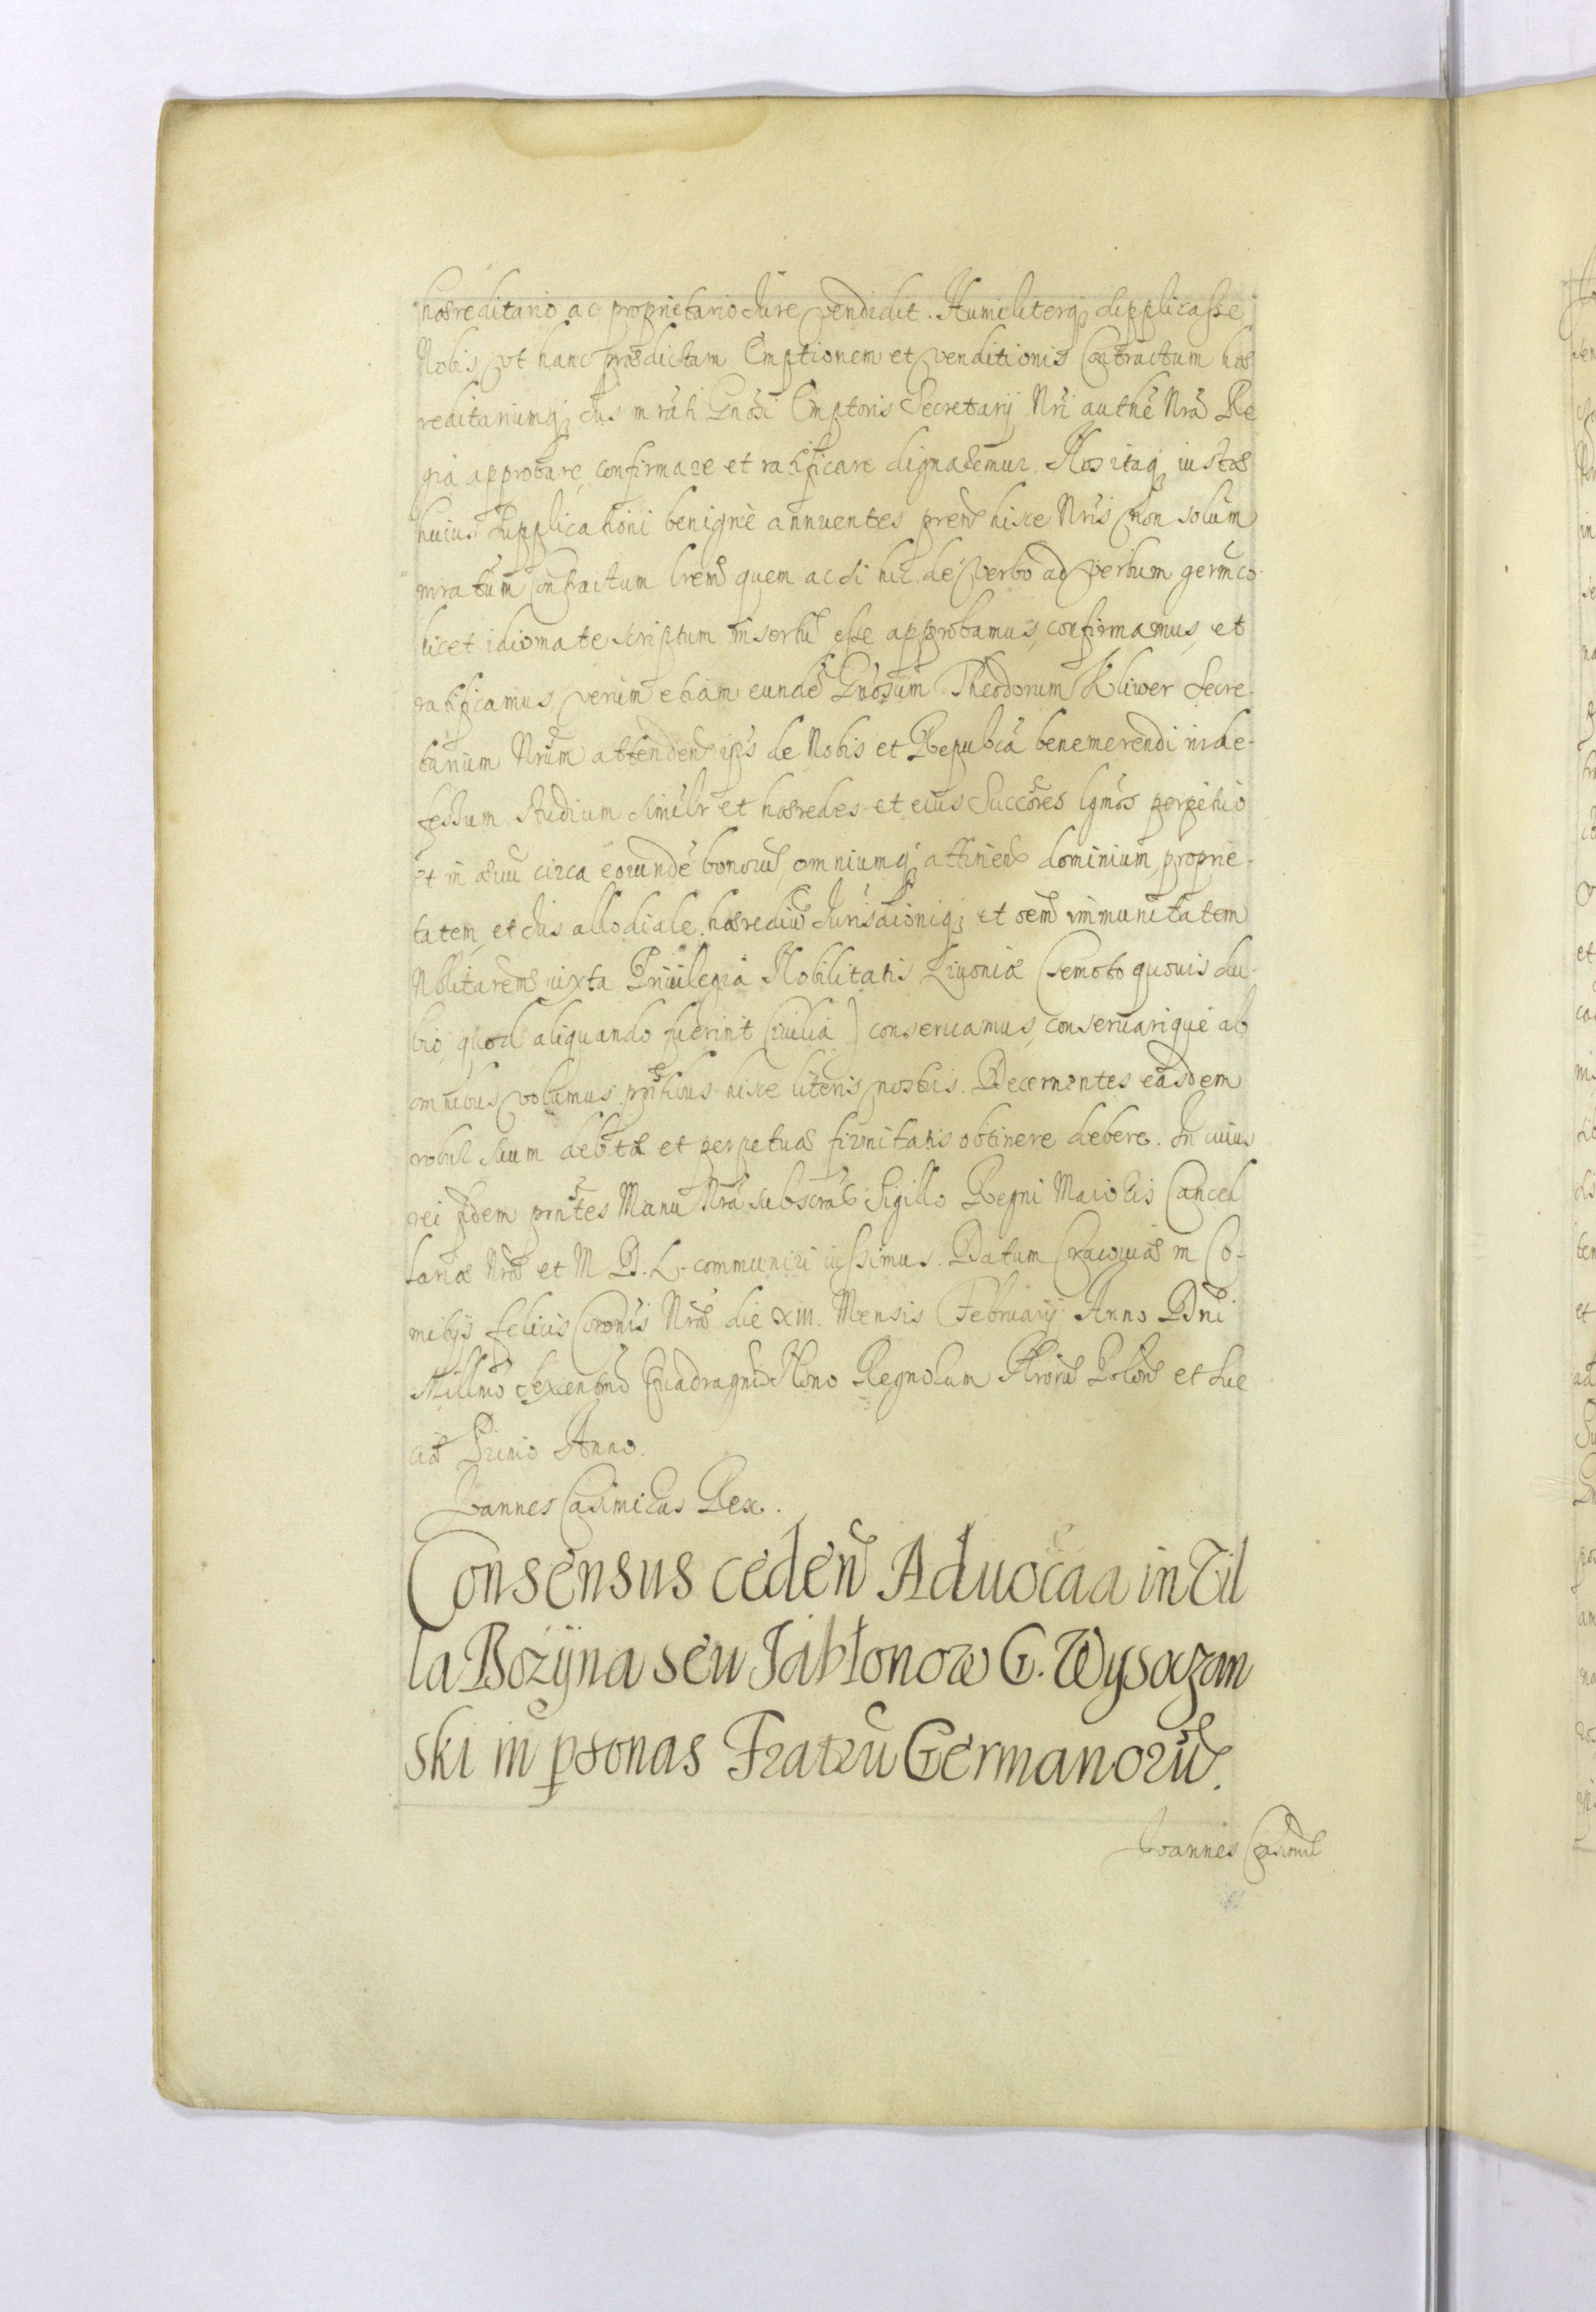 hæreditario ac proprietario Jure vendidit. Humiliterq; supplicasse
Nobis vt hanc prædictam Emptionem et venditionis Contractum hæ
reditariumq; Jus mrãti Gnosi Emptoris Secretarij Nri authẽ Nrã Re
gia approbare, confirmare et ratificare dignaremur. Nos itaq; iustæ
huius supplicationi benignè annuentes prens hisce Nris non solùm
mratum Contractum quem ac si hic de verbo ad verbum germco
licet idiomate scriptum insertũ esse approbamus, confirmamus, et
ratificamus, verùm etiam eundẽ Gnosum Theodorum Kliwer Secre-
tarium Nrum attenden ips de Nobis et Repubca benemerendi inde-
fessum studium simulr et hæredes et eius Succores lgmos perpetuò
et in æuũ circa eorundẽ bonorũ omniumq; attinen dominium, proprie-
tatem, et Jus allodiale, hærediũ Jurisdionisq; et oem immunitatem
Nblitarem iuxta Priuilegia Nobilitatis Liuoniæ (semoto quouis du-
bio, quod aliquando fuerint Ciuilia) conseruamus, conseruarique ab
omnibus volumus, pntibus hisce literis nostris. Decernentes easdem
robur suum debitæ et perpetuæ firmitatis obtinere debere. In cuius
rei fidem pntes Manu Nrã subscrãs Sigillo Regni Maioris Cancel
lariæ Nræ et M. D. L. communiri iussimus. Datum Cracouiæ in Co-
mitijs felicis Coronis Nræ die XIII. Mensis February Anno Dni
Millmo Sexcentmo Quadragmo Nono Regnorum Nrorũ Polon et Sue
ciæ Primo Anno.
Joannes Casimirus Rex.
Consensus ceden Aduocãa in Vil
la Bozÿna seu Jabłonow G. Wysoczan
ski in psonas Fratrũ Germanorũ.
Joannes Casimir